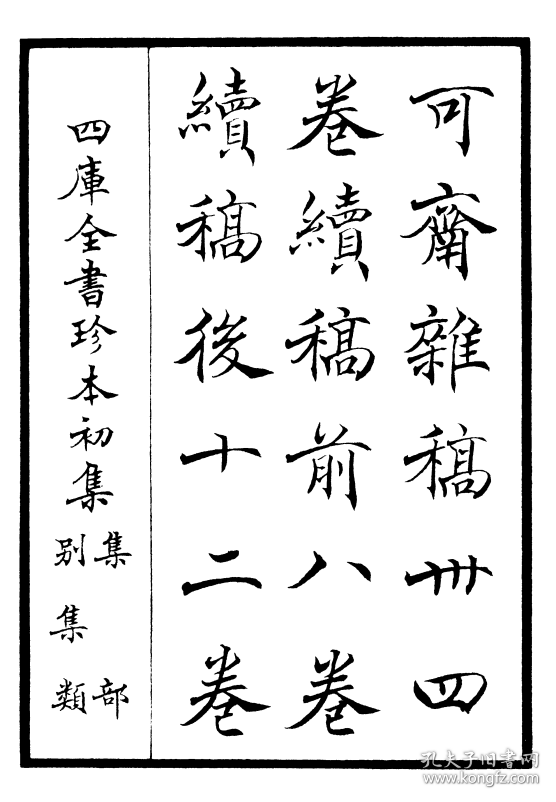 可齋雜稿卅四
卷續稿前八卷
續稿後十二卷
四庫全書珍本初集
集部
別集類
孔夫子旧书网
www.kongfz.com